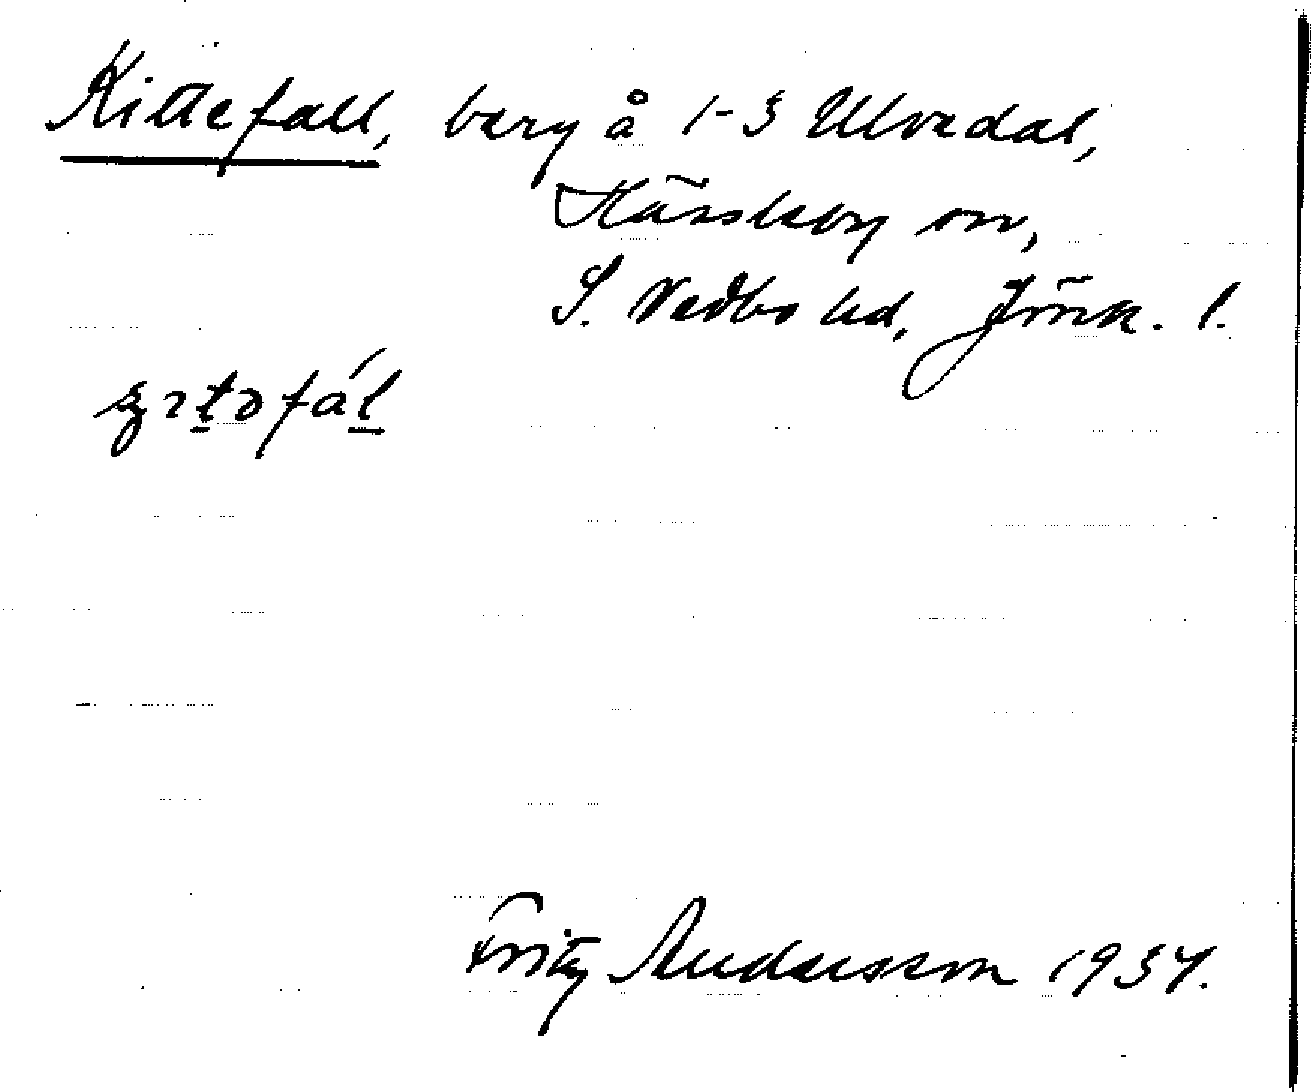 Kittefall, berg å 1-3 Ulvedal,
Hässleby sn,
S. Vedbo hd, Jönk. l.
fá
Fritz Andersson 1934.